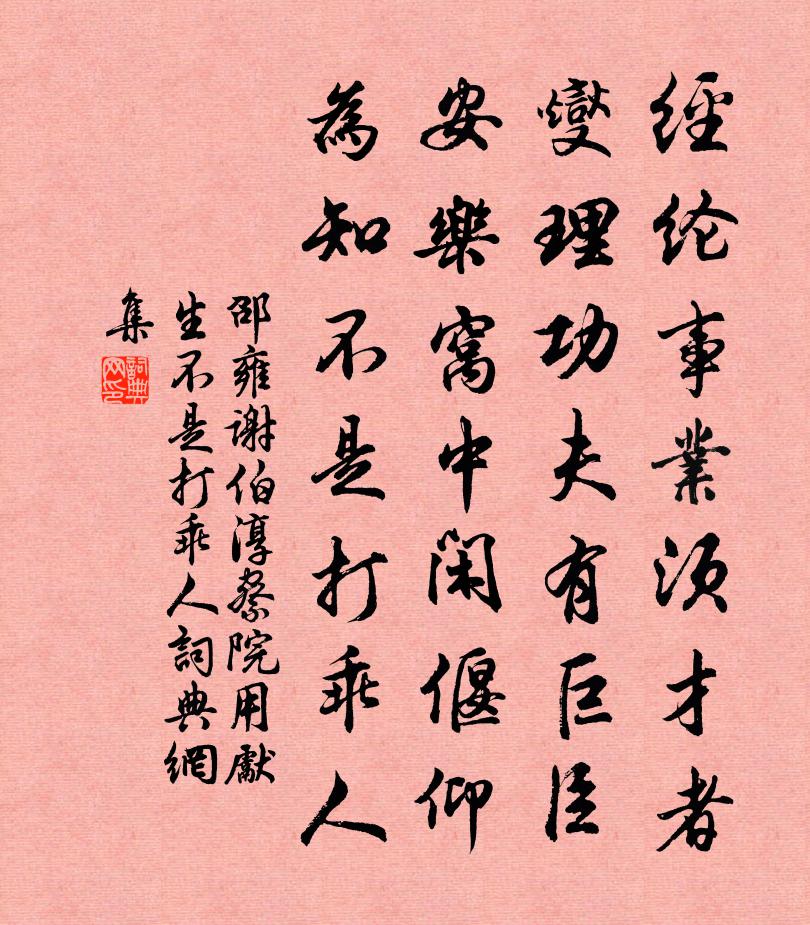 經纶事業須才者
燮理功夫有巨臣
安樂窩中閑偃仰
為知不是打乖人
邵雍謝伯淳察院用獻
生不是打乖人詞典網
集
詞典
网印